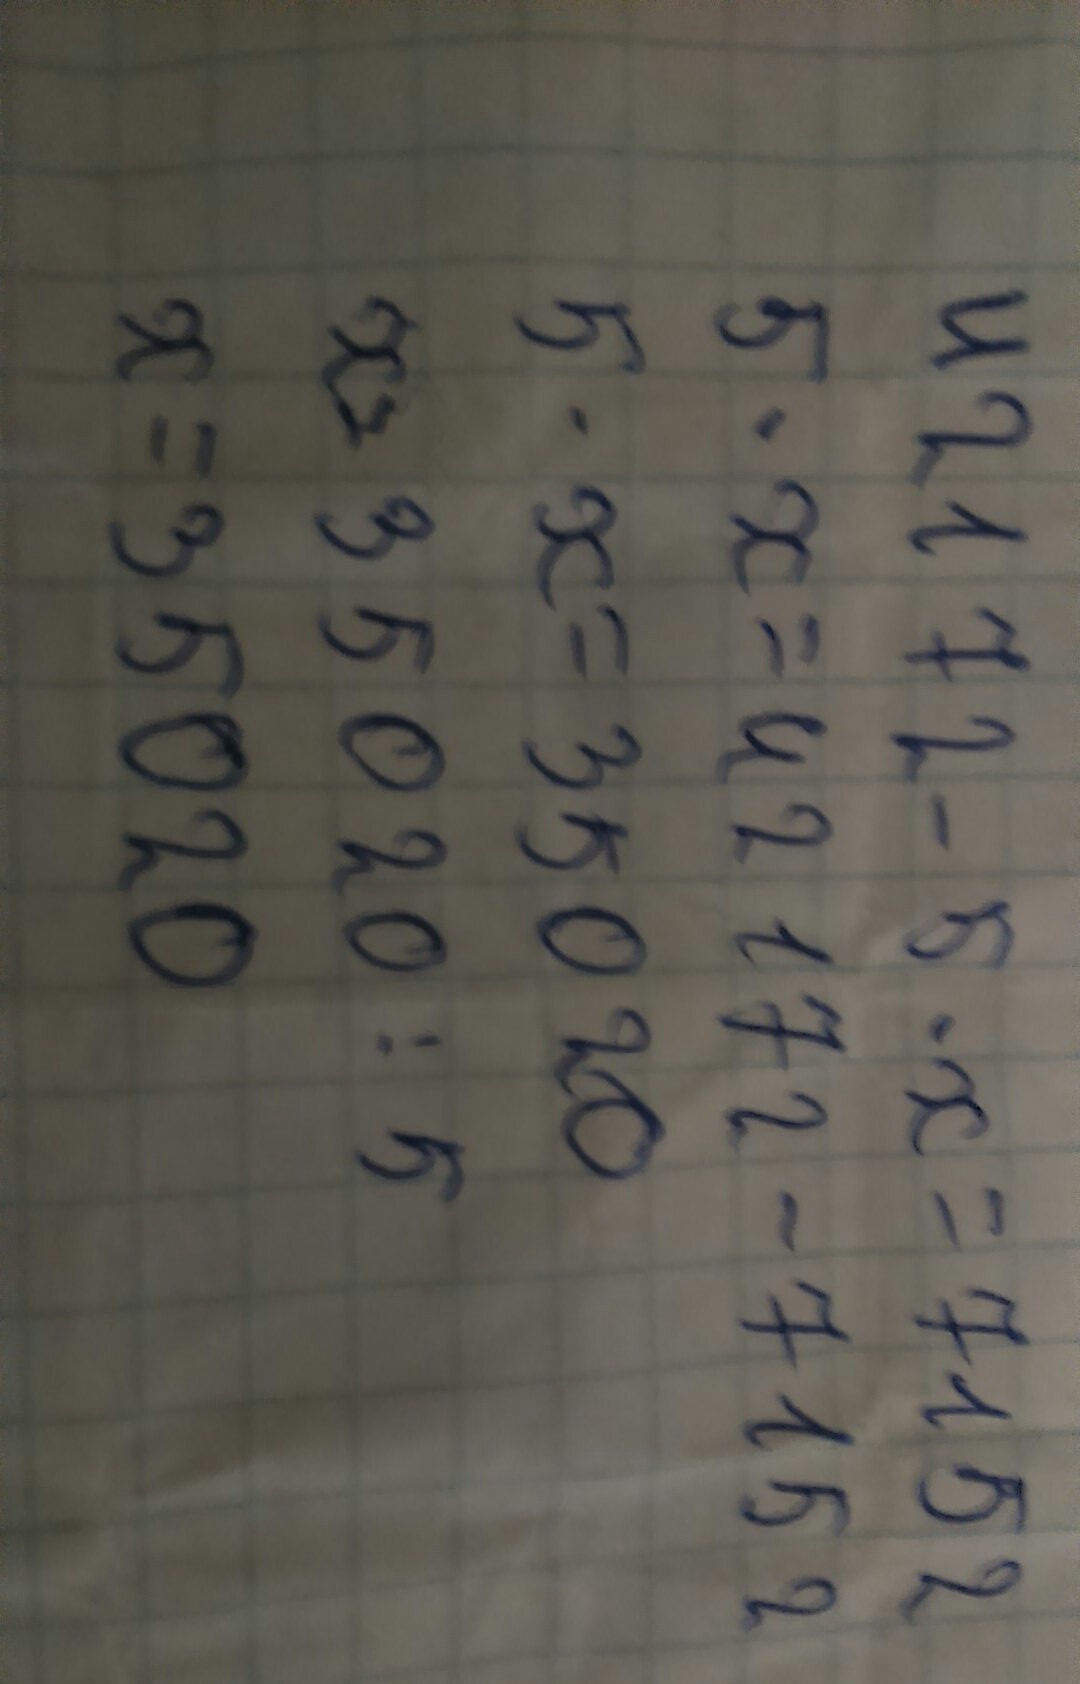 42172-5·x=7152
5·x=42172-7152
5·x=35020
x=35020:5
x=35020